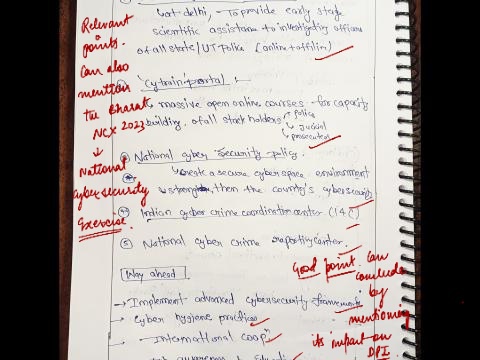 Relevant
points.
Can also
mention
the Bharat
NCX 2023
↓
National
cybersecurity
Exercise.
- To provide early stage
scientific assistance to investigating officers
of all state/UT police (online + offline)
'Cytrain' portal
massive open online courses for capacity
building of all stakeholders
→ Police
→ Judicial
→ prosecutors
③ National Cyber Security policy.
create a secure cyberspace environment
strengthen the country's cybersecurity
④ Indian cyber crime coordination center (I4C)
⑤ National cyber crime reporting center.
Way ahead
→ Implement advanced cybersecurity frameworks
→ Cyber hygiene practices
→ International coopn
Good point. Can
conclude
by
mentioning
its impact on
DPI